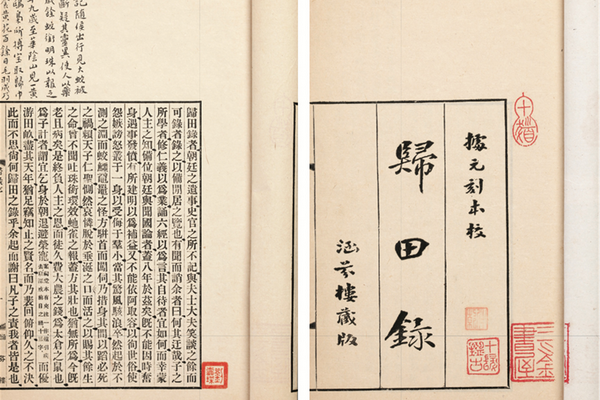 據元刻本校
歸田錄
涵芬樓藏版
記隨侯出行見大蛇被
斷疑其靈異使人以藥
蛇銜明珠以報之
年九歲至華陰山見一黃
所搏寶取歸巾
食黃花百餘日毛羽成乃
歸田錄者朝廷之遺事史官之所不記與夫士大夫笑談之餘而
可錄者錄之以備閒居之覽也有聞而誚余者曰何其迂哉子之
所學者修仁義以爲業誦六經以爲言其自待者宜如何而幸蒙
人主之知備位朝廷與聞國論者蓋八年於茲矣既不能因時奮
身遇事發憤有所建明以爲補益又不能依阿取容以徇世俗使
怨嫉謗怒叢于一身以受侮于羣小當其驚風駭浪卒然起於不
測之淵而蛟鱷黿鼉之怪方駢首而闖伺乃措身其間以蹈必死
之禍賴天子仁聖惻然哀憐脫於垂涎之口而活之以賜其餘生
之命曾不聞吐珠銜環效蛇雀之報蓋方其壯也猶無所爲今既
老且病矣是終負人主之恩而徒久費大農之錢爲太倉之鼠也
爲子計者謂宜乞身於朝退避榮寵而優
游田畝盡其天年猶足竊知止之賢名而乃裴回俯仰久之不決
此而不思尚何歸田之錄乎余起而謝曰凡子之責我者皆是也